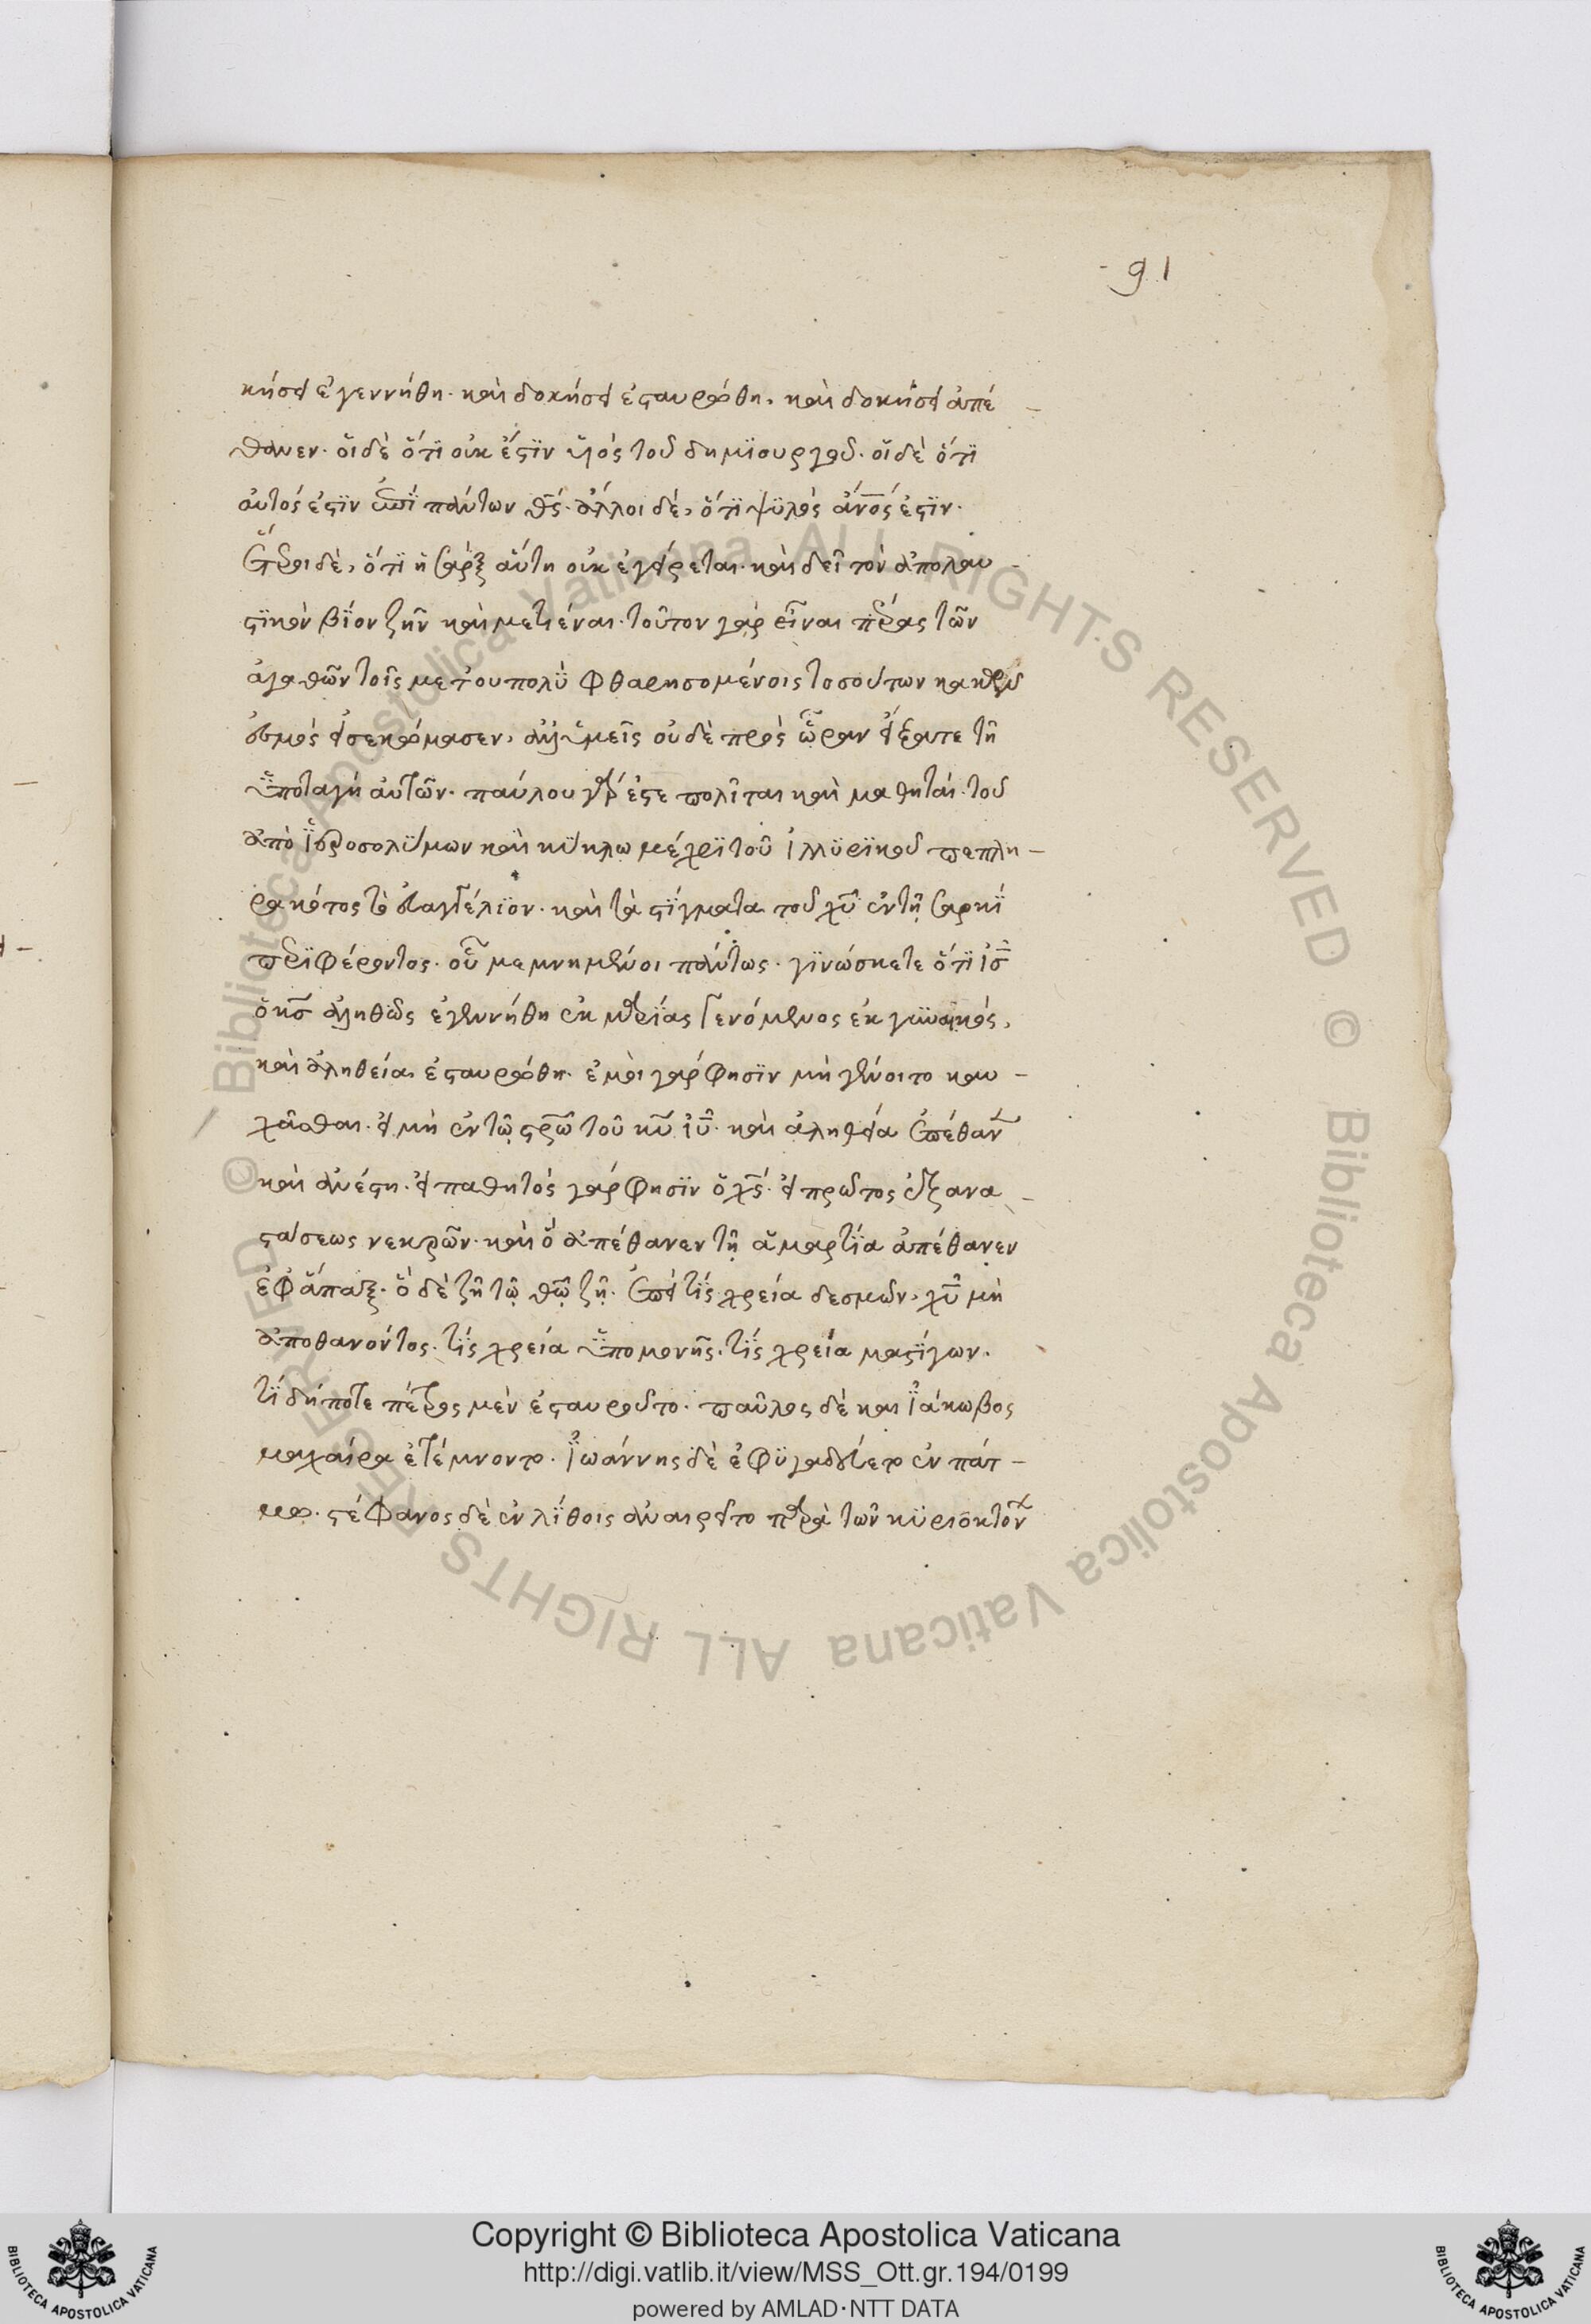 91
κήσει ἐγεννήθη. καὶ δοκήσει ἐσταυρώθη, καὶ δοκήσει ἀπέ-
θανεν. οἱ δὲ ὅτι οὐκ ἔστϊν ὑϊὸς τοῦ δημϊουργοῦ. οἱ δὲ ὅτϊ
αὐτός ἐστϊν ὁ ἐπὶ πάντων θς. ἄλλοι δὲ, ὅτϊ ψϋλὸς ἄνος ἐστϊν.
ἕτεροι δὲ, ὅτϊ ἡ σὰρξ αὕτη οὐκ ἐγείρεται. καὶ δεῖ τὸν ἀπολαυ-
στϊκὸν βΐον ζῆν καὶ μετϊέναι. τοῦτον γὰρ εἶναι πέρας τῶν
ἀγαθῶν τοῖς μετ' οὐ πολὺ φθαρησομένοις τοσούτων κακῶν
ἑσμὸς εἰσεκώμασεν, ἀλλ' ὑμεῖς οὐδὲ πρὸς ὥραν εἴξατε τῇ
ὑποταγῇ αὐτῶν. παύλου γάρ ἐστε πολῖται καὶ μαθηταὶ. τοῦ
ἀπὸ ϊεροσολύμων καὶ κύκλω μέχρϊ τοῦ ἰλλϋρϊκοῦ πεπλη-
ρωκότος τὸ εὐαγγέλϊον. καὶ τὰ στΐγματα τοῦ χυ ἐν τῇ σαρκῒ
περϊφέροντος. οὗ μεμνημένοι πάντως. γϊνώσκετε ὅτϊ ις
ὁ κς ἀληθῶς ἐγεννήθη ἐκ μαρΐας γενόμενος ἐκ γυναικός,
καὶ ἀληθεία ἐσταυρώθη. ἐμοὶ γάρ φησϊν μὴ γένοιτο καυ-
χᾶσθαι. εἰ μὴ ἐν τῷ στρω τοῦ κυ ιυ. καὶ ἀληθεία ἀπέθανεν
καὶ ἀνέστη. εἰ παθητὸς γάρ φησϊν ὁ χς. εἰ πρῶτος ἐξ ανα-
στάσεως νεκρῶν. καὶ ὃ ἀπέθανεν τῇ ἁμαρτΐα ἀπέθανεν
ἐφάπαξ. ὃ δὲ ζῇ τῷ θω ζῇ. ἐπεὶ τΐς χρεία δεσμῶν, χυ μὴ
ἀποθανόντος. τΐς χρεία ὑπομονῆς. τΐς χρεία μαστΐγων.
τΐ δήποτε πέτρος μὲν ἐσταυροῦτο. παῦλος δὲ και ϊάκωβος
μαχαίρα ἐτέμνοντο. ϊωάννης δὲ ἐφϋγαδεύετο ἐν πάτ-
μω. στέφανος δὲ ἐν λΐθοις ἀναιρεῖτο παρὰ τῶν κϋριοκτόν
Copyright © Biblioteca Apostolica Vaticana
http://digi.vatlib.it/view/MSS_Ott.gr.194/0199
powered by AMLAD·NTT DATA
BIBLIOTECA APOSTOLICA VATICANA
BIBLIOTECA APOSTOLICA VATICANA
© Biblioteca Apostolica Vaticana ALL RIGHTS RESERVED © Biblioteca Apostolica Vaticana ALL RIGHTS RESERVED